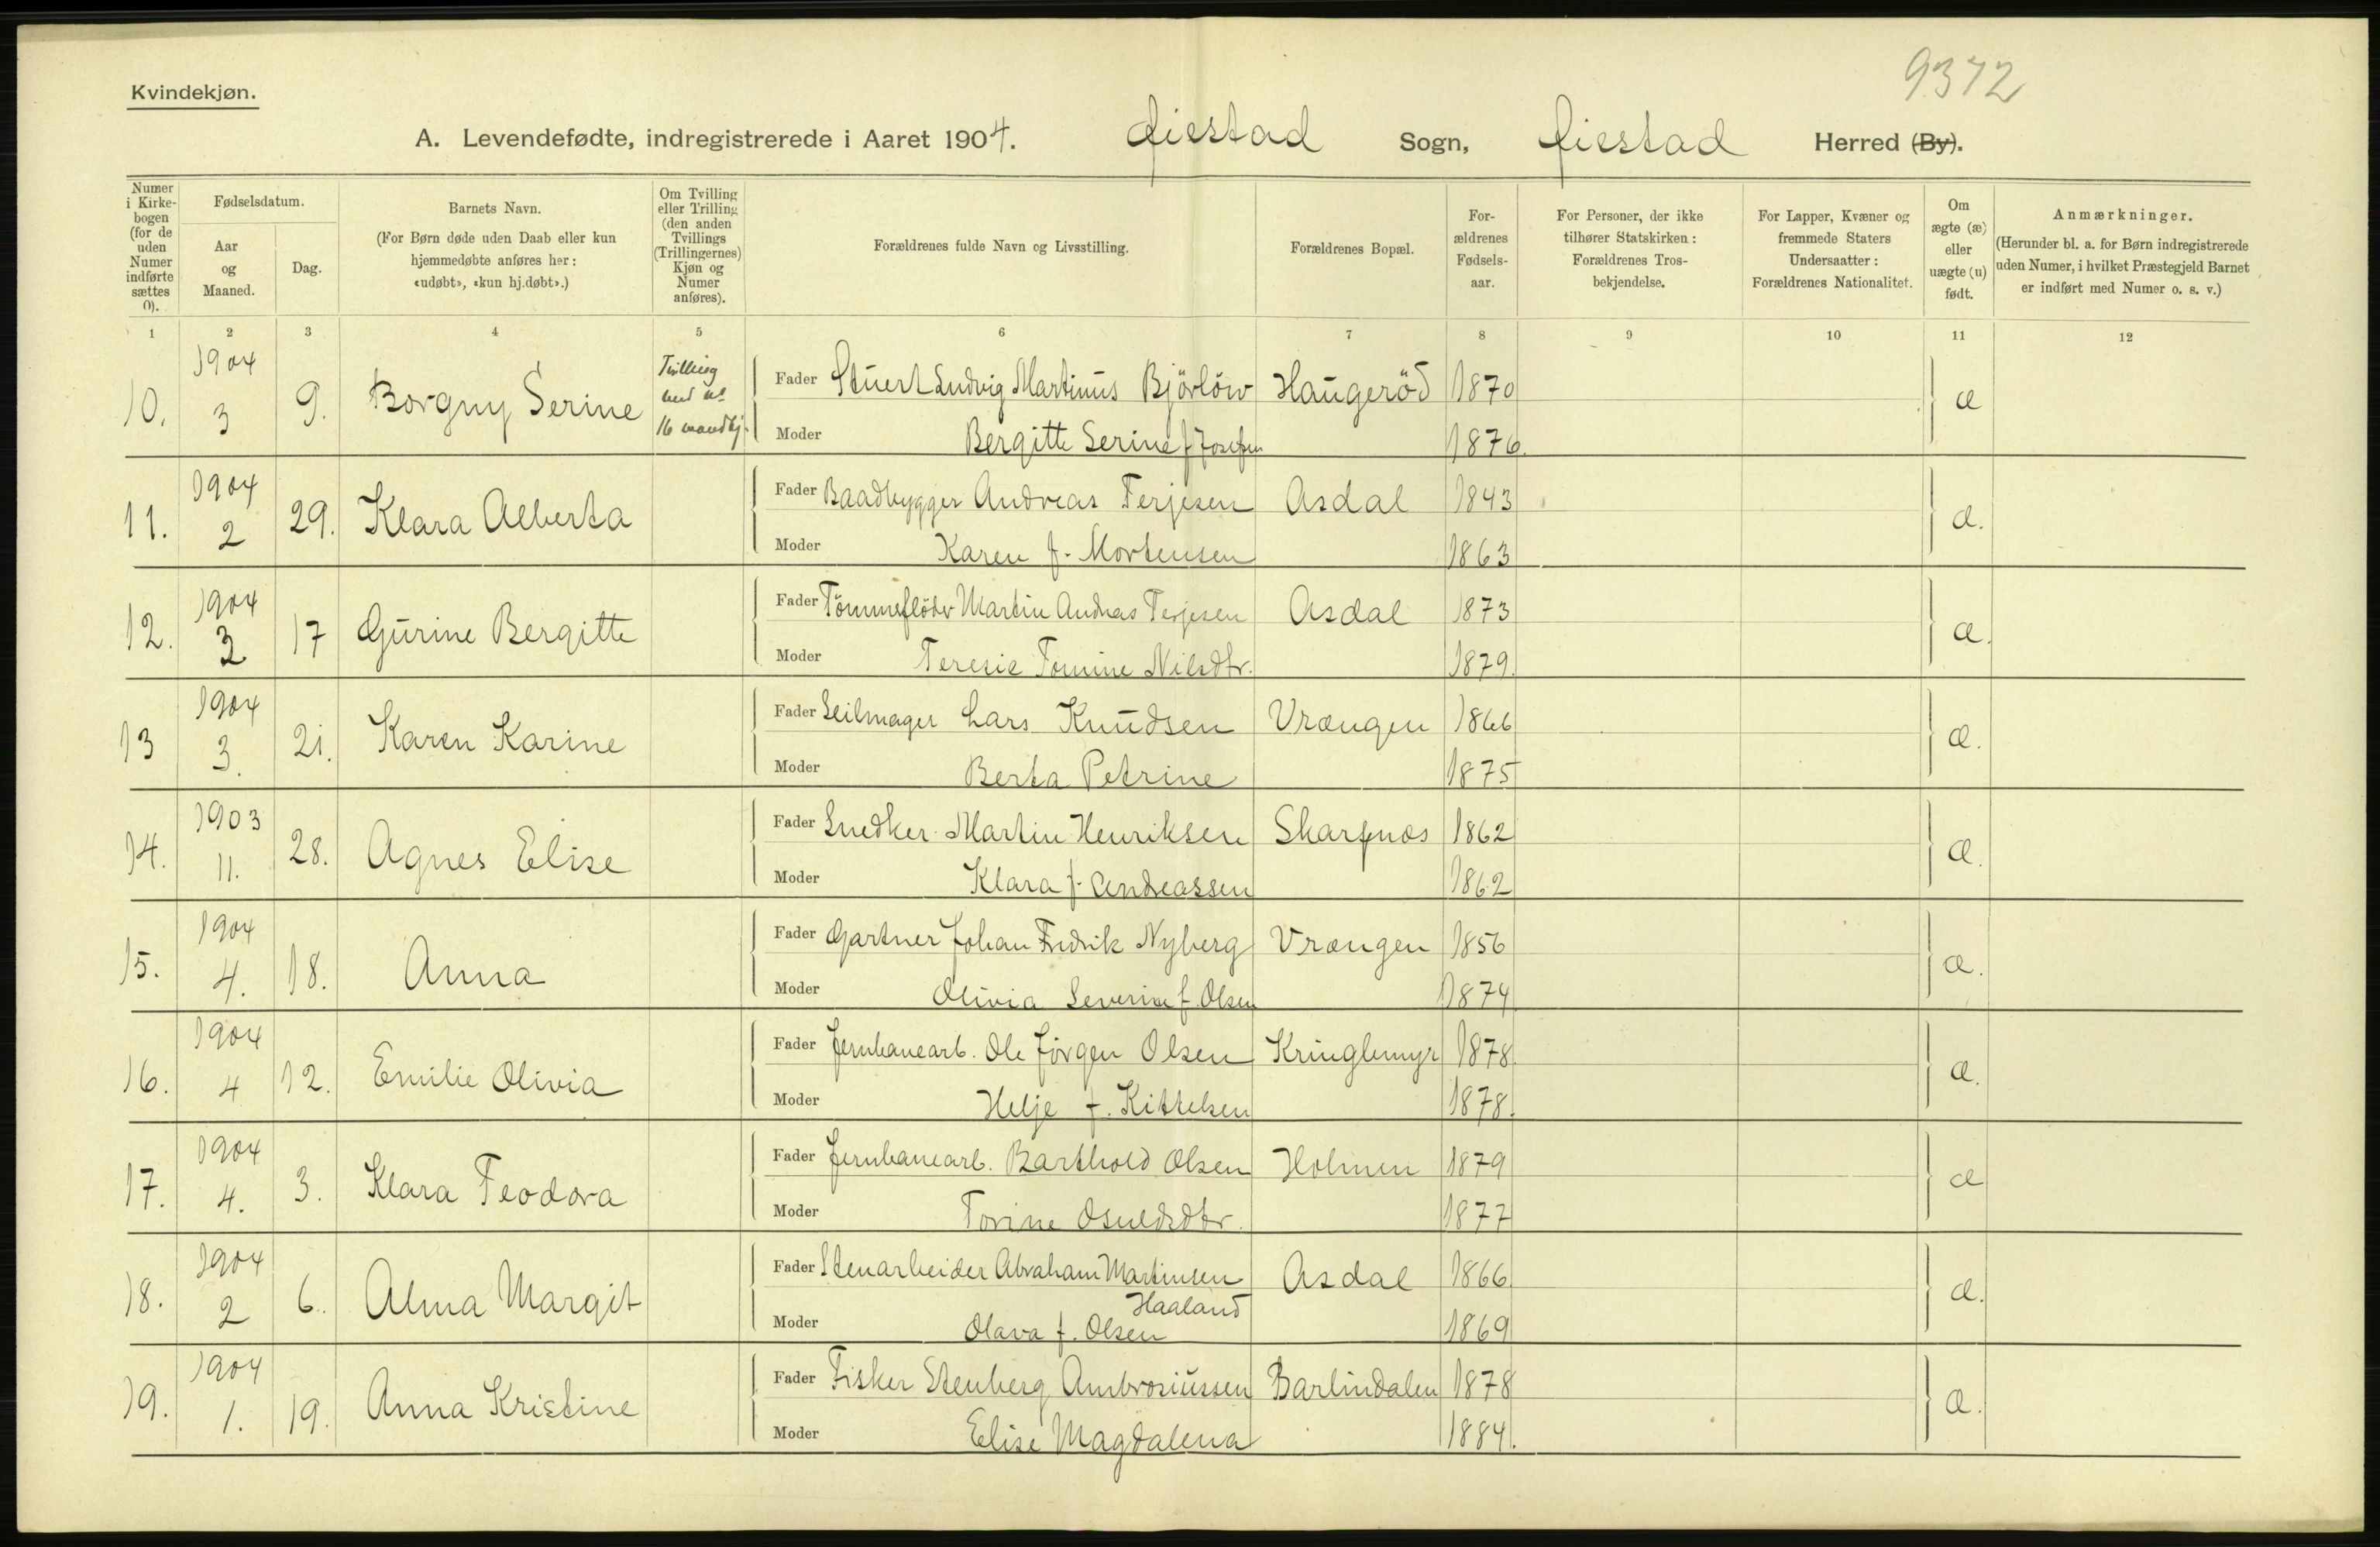 9372
Kvindekjøn.
A. Levendefødte, indregistrerede i Aaret 1904. Øiestad Sogn, Øiestad Herred (By).
Numer i Kirkebogen (for de uden Numer indførte sættes 0).
Fødselsdatum.
Aar og Maaned.
Dag.
Barnets Navn.
(For Børn døde uden Daab eller kun hjemmedøbte anføres her: «udøbt», «kun hj.døbt».)
Om Tvilling eller Trilling (den anden Tvillings (Trillingernes) Kjøn og Numer anføres).
Forældrenes fulde Navn og Livsstilling.
Forældrenes Bopæl.
Forældrenes Fødselsaar.
For Personer, der ikke tilhører Statskirken: Forældrenes Trosbekjendelse.
For Lapper, Kvæner og fremmede Staters Undersaatter: Forældrenes Nationalitet.
Om ægte (æ) eller uægte (u) født.
Anmærkninger.
(Herunder bl. a. for Børn indregistrerede uden Numer, i hvilket Præstegjeld Barnet er indført med Numer o. s. v.)
1 2 3 4 5 6 7 8 9 10 11 12
10. 1904 3 9. Borgny Serine Tvilling med no 16 mandkj. Fader Stuert Ludvig Martinus Björlöw Haugeröd 1870 æ
Moder Bergitte Serine f. Josefsen 1876.
11. 1904 2 29. Klara Alberta Fader Baadbygger Andreas Terjesen Asdal 1843 æ.
Moder Karen f. Mortensen 1863
12. 1904 3 17 Gurine Bergitte Fader Tömmerflöder Martin Andreas Terjesen Asdal 1873 æ.
Moder Teresie Tomine Nilsdtr. 1879.
13 1904 3. 21. Karen Karine Fader Seilmager Lars Knudsen Vrængen 1866 æ.
Moder Berta Petrine 1875
14. 1903 11. 28. Agnes Elise Fader Snedker Martin Henriksen Skarpnæs 1862 æ.
Moder Klara f. Andreassen 1862
15. 1904 4. 18. Anna Fader Gartner Johan Fredrik Nyberg Vrængen 1856 æ.
Moder Olivia Severine f. Olsen 1874
16. 1904 4 12. Emilie Olivia Fader Jernbanearb. Ole Jörgen Olsen Kringlemyr 1878. æ.
Moder Helje f. Kittelsen 1878.
17. 1904 4. 3. Klara Teodora Fader Jernbanearb. Barthold Olsen Holmen 1879 æ
Moder Torine Osuldsdtr. 1877
18. 1904 2 6. Alma Margit Fader Stenarbeider Abraham Martinsen Haaland Asdal 1866 æ.
Moder Olava f. Olsen 1869
19. 1904 1. 19. Anna Kristine Fader Fisker Stenberg Ambrosiussen Barlindalen 1878 æ.
Moder Elise Magdalena 1884.